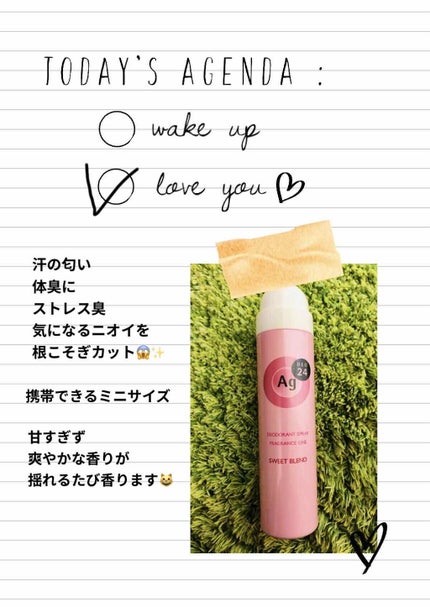 TODAY'S AGENDA :
wake up
love you
汗の匂い
体臭に
ストレス臭
気になるニオイを
根こそぎカット😱✨
携帯できるミニサイズ
甘すぎず
爽やかな香りが
揺れるたび香ります😺
Ag
DEO
24
DEODORANT SPRAY
FRAGRANCE LINE
SWEET BLEND